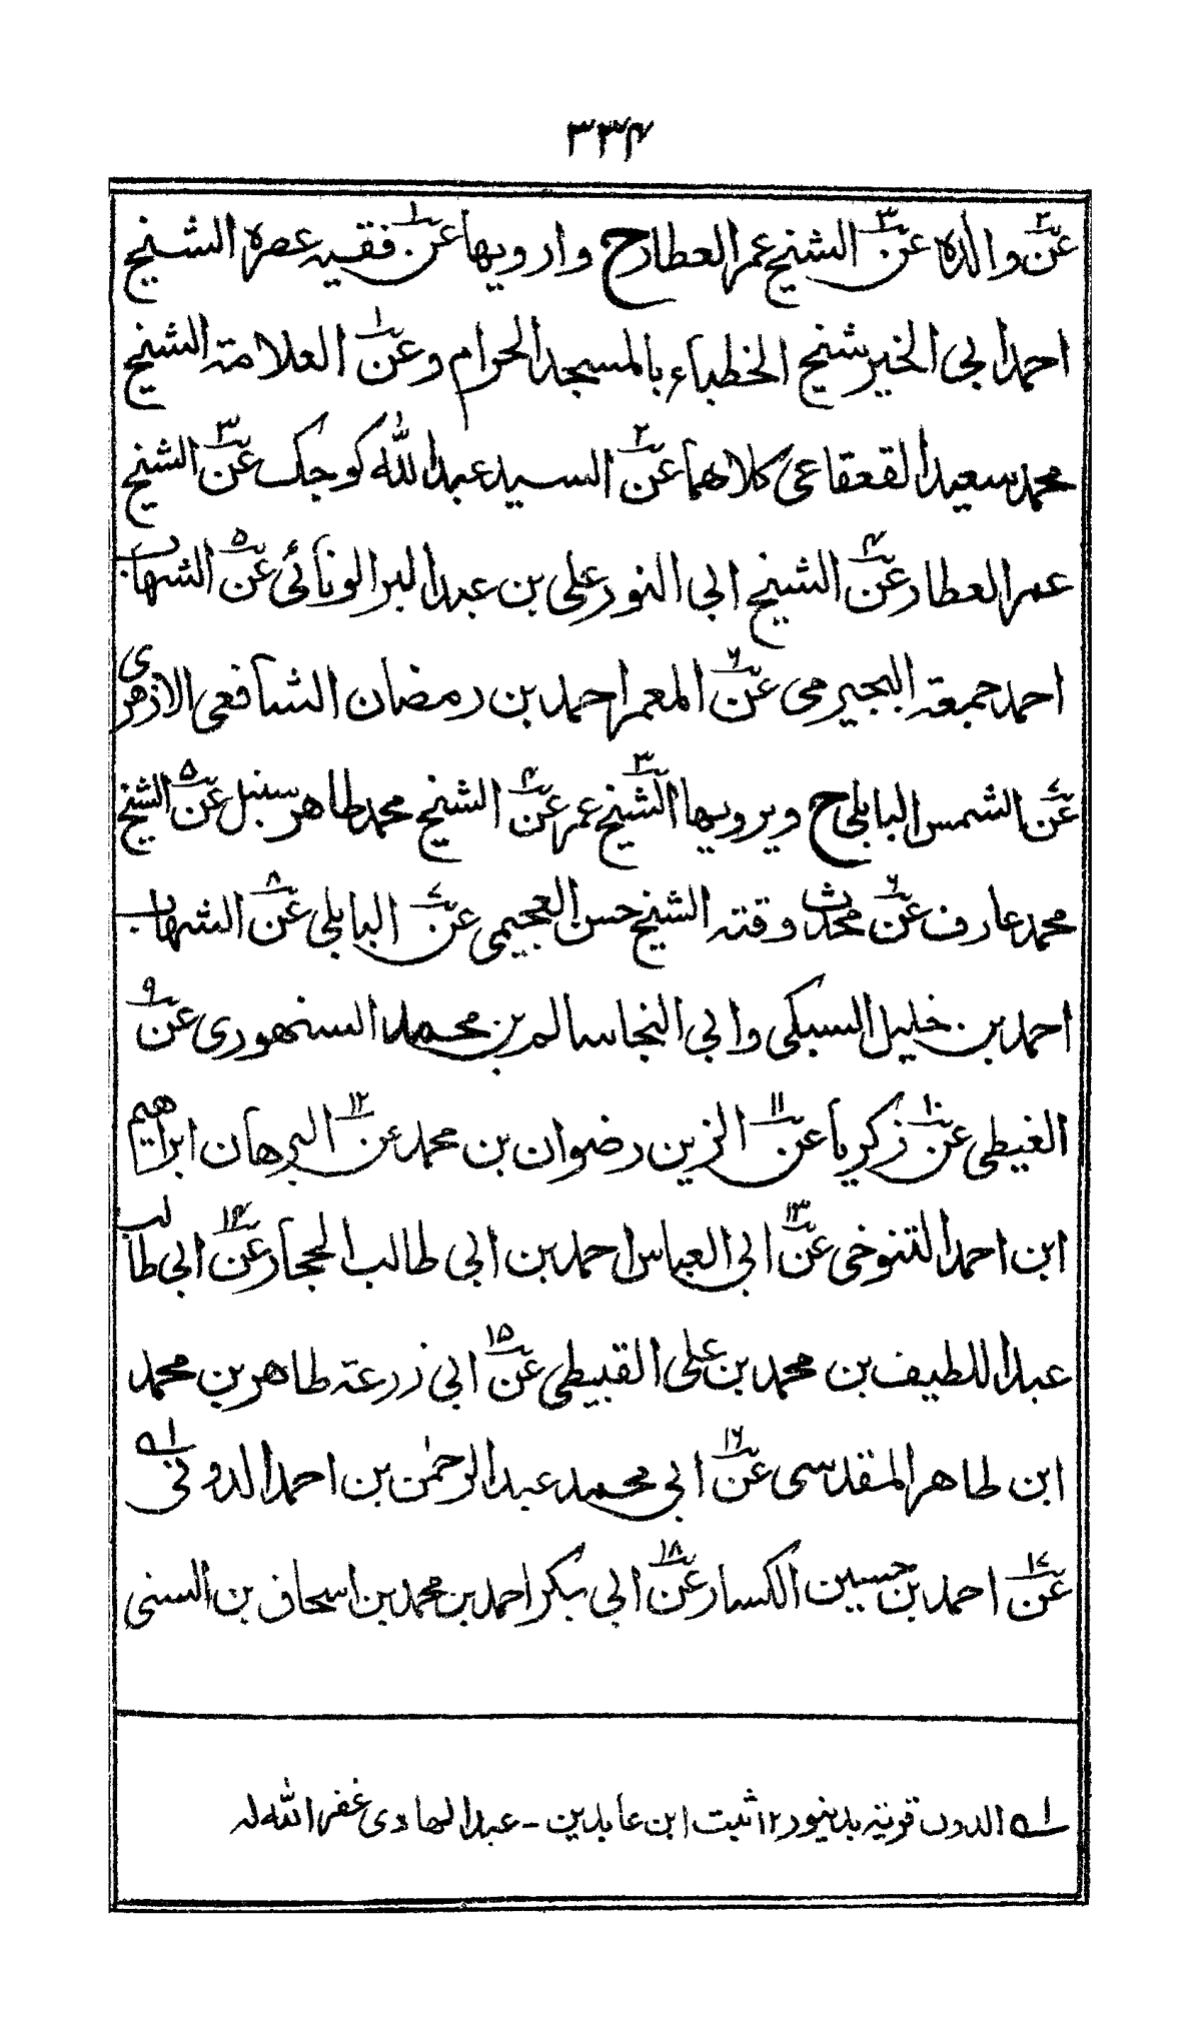 ۳۳۴
عن۲ والده عن۳ الشيخ عمر العطار ح وارويها عن۱ فقيه عصره الشيخ
احمد ابى الخير شيخ الخطباء بالمسجد الحرام وعن۱ العلامة الشيخ
محمد سعيد القعقاعى كلاهما عن۲ السيد عبد الله كوجك عن۳ الشيخ
عمر العطار عن۴ الشيخ ابى النور على بن عبد البر الونائى عن۵ الشهاب
احمد جمعة البجيرمى عن۶ المعمر احمد بن رمضان الشافعى الازهرى
عن۷ الشمس البابلى ح ويرويها الشيخ۳ عمر عن۴ الشيخ محمد طاهر سنبل عن۵ الشيخ
محمد عارف عن۶ محدث وقته الشيخ حسن العجيمى عن۷ البابلى عن۸ الشهاب
احمد بن خليل السبكى وابى النجا سالم بن محمد السنهورى عن۹
الغيطى عن۱۰ زكريا عن۱۱ الزين رضوان بن محمد عن۱۲ البرهان ابراهيم
ابن احمد التنوخى عن۱۳ ابى العباس احمد بن ابى طالب الحجار عن۱۴ ابى طالب
عبد اللطيف بن محمد بن على القبيطى عن۱۵ ابى زرعة طاهر بن محمد
ابن طاهر المقدسى عن۱۶ ابى محمد عبد الرحمٰن بن احمد الدونى ۱ه
عن۱۷ احمد بن حسين الكسار عن۱۸ ابى بكر احمد بن محمد بن اسحاق بن السنى
۱ه الدون قرية بدينور ۱۲ ثبت ابن عابدين - عبد الهادى غفر الله له